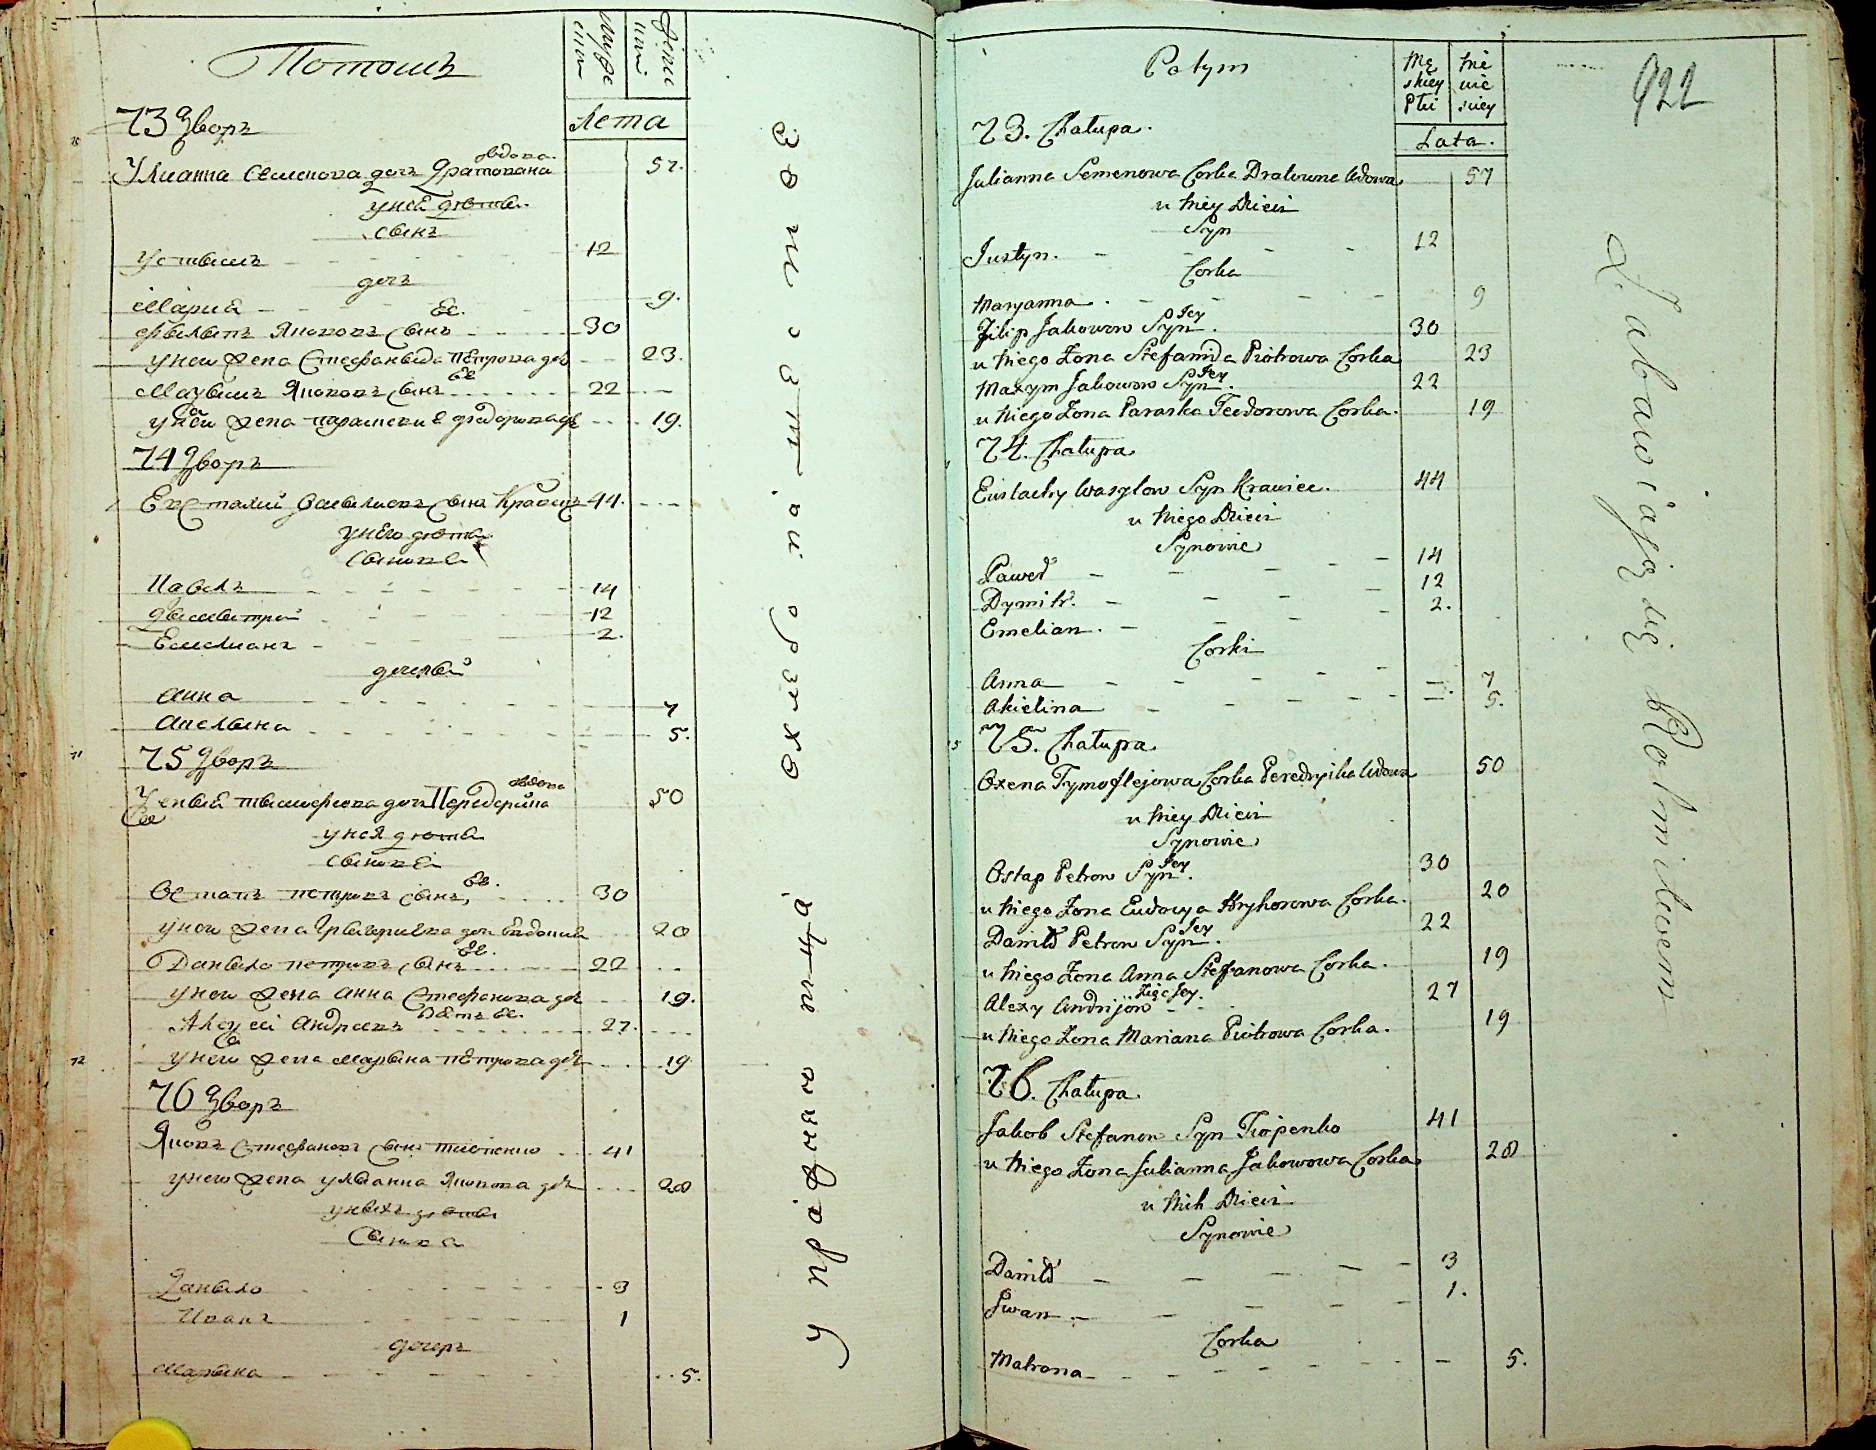 Потомъ
мужескии
женскии
Лета
73 дворъ
вдова.
Улианна Семенова доч Дратована 57.
у ней дети.
сынъ
Устымъ 12
доч
Мария 9.
Ее.
Филипъ Якововъ сынъ 30
у него жена Стефанида Петрова доч 23.
Ее
Максымъ Яковов сынъ 22
у него жена Параскеия Федорова доч 19.
74 дворъ
Евстахий Василиовъ сынъ Кравецъ 44.
у него дети
сынове
Павелъ 14
Дымытрий 12
Емелианъ 2.
дочери
Анна 7
Акелына 5.
75 дворъ
вдова
Ксения Тимофеева доч Передерийна 50
у нея дети
сынове
Ее.
Остапъ Петровъ сынъ 30
у него жена Григориева доч Евдокия 20
Ее.
Данило Петровъ сынъ 22
у него жена Анна Стефанова доч 19.
зять Ее.
Алексей Андреевъ 27.
у него жена Марына Петрова доч 19
76 дворъ
Яковъ Стефановъ сынъ 41
у него жена Улианна Яковова доч 28
у нихъ дети
сынове
Данило 3
Иванъ 1
дочеръ
Марына 5.
Potym
Męskiey Płci
Żeńskiey
Lata.
922
73. Chałupa.
Julianna Semenowa Corka Dratowna wdowa 57
u Niey Dzieci
Syn
Justyn. 12
Corka
Maryanna. 9
Filip Jakowow Syn Jey. 30
u Niego Żona Stefanida Piotrowa Corka 23
Maxym Jakowow Syn Jey. 22
u Niego Żona Paraska Teodorowa Corka. 19
74. Chałupa
Eustachy Wasylow Syn Krawiec. 44
u Niego Dzieci
Synowie
Paweł 14
Dymitr. 12
Emelian. 2.
Corki
Anna 7
Akielina 5.
75. Chałupa
Oxena Tymoftejowa Corka wdowa 50
u Niey Dzieci
Synowie
Ostap Petrow Syn Jey. 30
u Niego Żona Eudocya Hryhorowa Corka. 20
Daniło Petrow Syn Jey. 22
u Niego Żona Anna Stefanowa Corka. 19
Alexy Andrijow Zięc Jey. 27
u Niego Żona Mariana Piotrowa Corka. 19
76. Chałupa
Jakob Stefanow Syn 41
u Niego Żona Julianna Jakowowa Corka 28
u Nich Dzieci
Synowie
Daniło 3
Iwan 1.
Corka
Matrona 5.
Zabawiaią się Rolnictwem